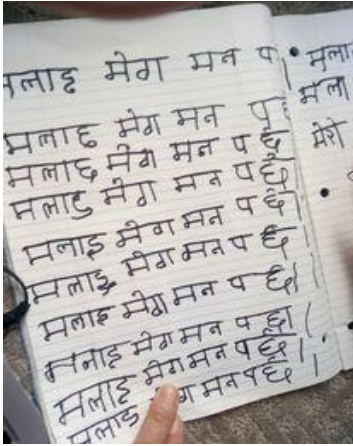 मलाइ मेग मन प।
मलाइ मेग मन प छ
मलाइ मेग मन प छ
मलाइ मेग मन प छ।
मलाइ मेग मन प छ।
मलाइ मेग मन प छ।
मलाइ मेग मन प छ।
मलाइ मेग मन प छ।
मलाइ मेग मन प छ।
मलाइ मन प छ।
मला
मला
मेरो